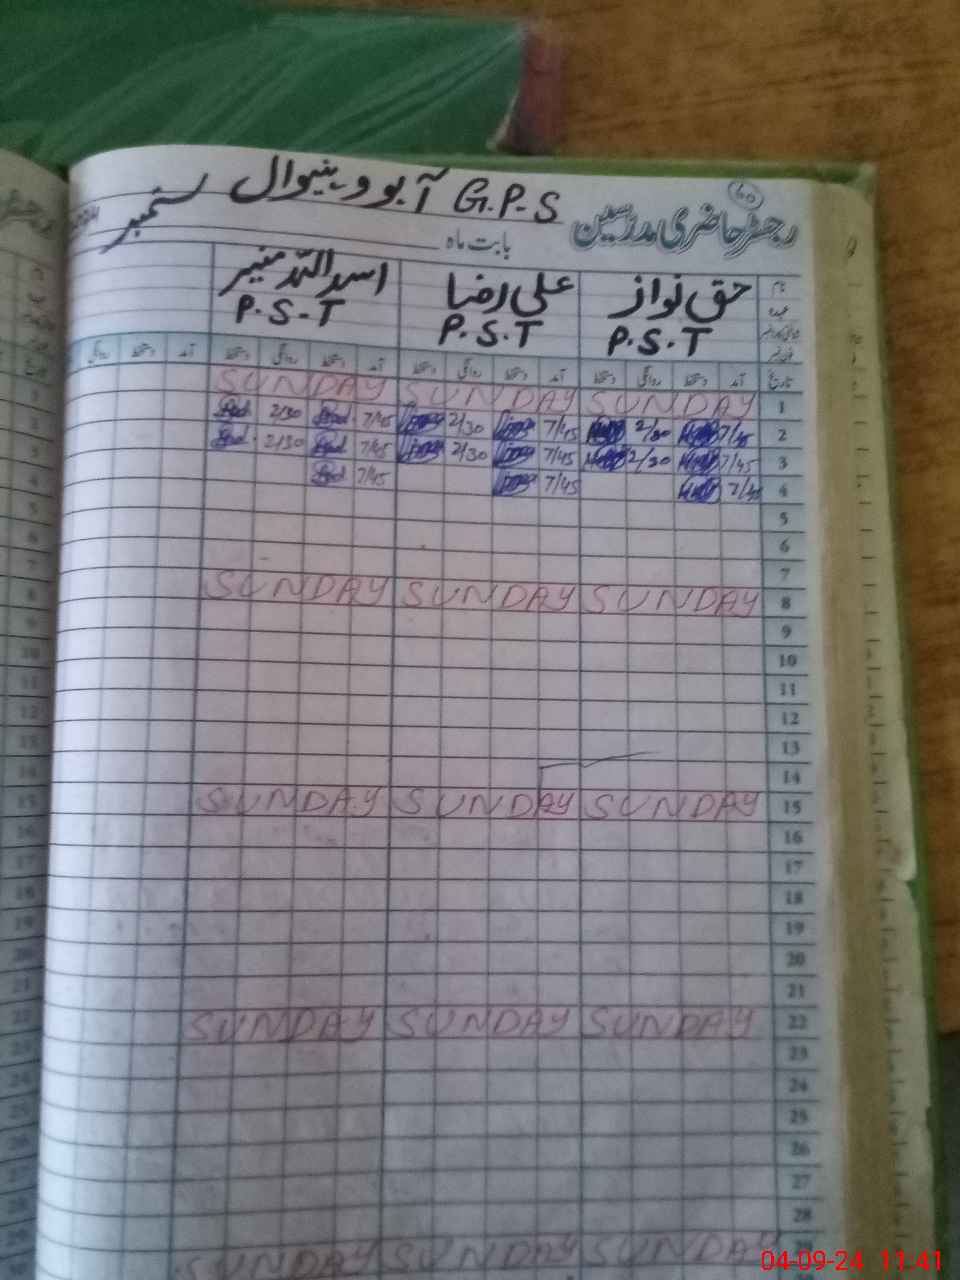 60
رجسٹر حاضری مدرسین
G.P.S آبو وینیوال
بابت ماہ ستمبر
نام
حق نواز
علی رضا
اسد اللہ منیر
P.S.T P.S.T P.S.T
تاریخ آمد دستخط روانگی دستخط آمد دستخط روانگی دستخط آمد دستخط روانگی دستخط آمد دستخط روانگی
SUNDAY SUNDAY SUNDAY 1
2/30 7/45 2/30 7/45 2/30 7/45 2
2/30 7/45 2/30 7/45 2/30 7/45 3
7/45 7/45 7/45 4
5
6
7
SUNDAY SUNDAY SUNDAY 8
9
10
11
12
13
14
SUNDAY SUNDAY SUNDAY 15
16
17
18
19
20
21
SUNDAY SUNDAY SUNDAY 22
23
24
25
26
27
28
SUNDAY SUNDAY SUNDAY 29
04-09-24 11:41